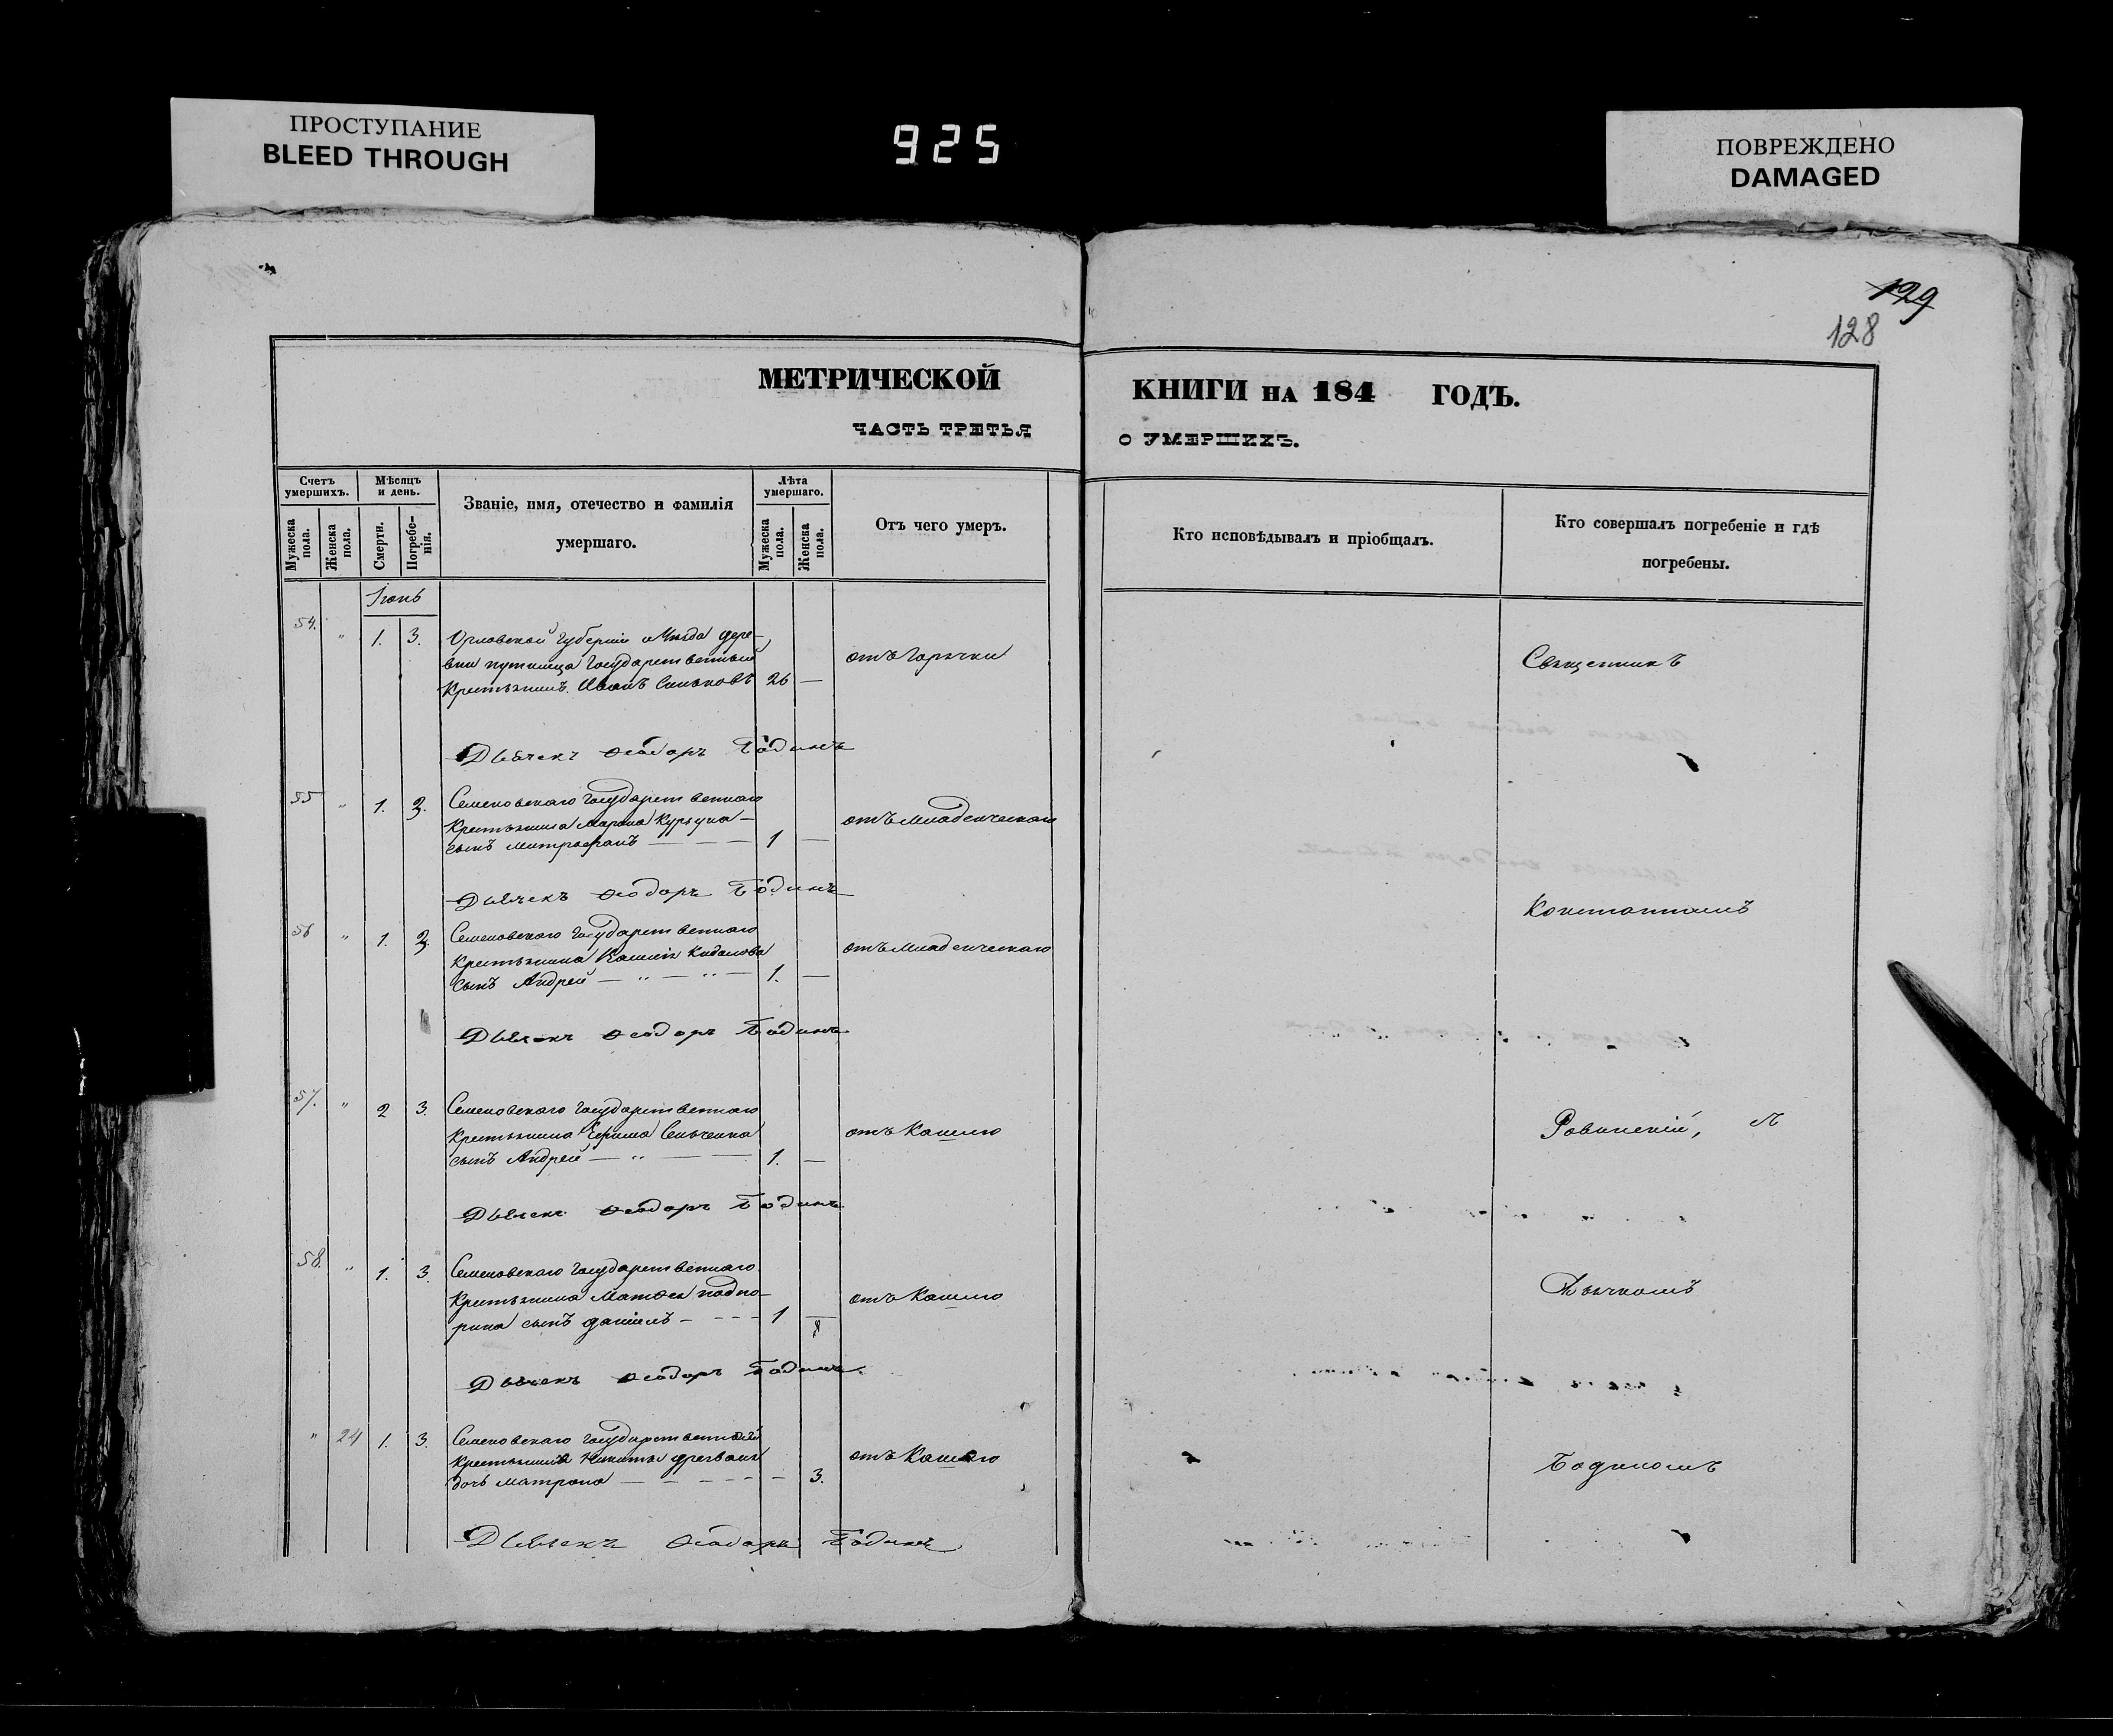 ПРОСТУПАНИЕ
BLEED THROUGH
925
ПОВРЕЖДЕНО
DAMAGED
129
128
МЕТРИЧЕСКОЙ
КНИГИ НА 184 ГОДЪ.
ЧАСТЬ ТРЕТЬЯ
О УМЕРШИХЪ.
Счетъ умершихъ.
Мужеска пола.
Женска пола.
Мѣсяцъ и день.
Смерти.
Погребенія.
Званіе, имя, отечество и фамилія
умершаго.
Лѣта умершаго.
Мужеска пола.
Женска пола.
Отъ чего умеръ.
Кто исповѣдывалъ и пріобщалъ.
Кто совершалъ погребеніе и гдѣ
погребены.
Іюнь
54. " 1. 3. Орловской Губерніи уѣзда дере-
вни Государственный
Крестьянинъ Иванъ 26 — отъ Горячки
Священникъ
Дьячекъ Ѳеодоръ Бодинъ
55 " 1. 3. Семеновскаго Государственнаго
Крестьянина Марка
сынъ Митрофанъ — — — 1 — отъ Младенческаго
Дьячекъ Ѳеодоръ Бодинъ
Константинъ
56 " 1. 3. Семеновскаго Государственнаго
Крестьянина
сынъ Андрей — " — " — 1. — отъ Младенческаго
Дьячекъ Ѳеодоръ Бодинъ
57. " 2 3. Семеновскаго Государственнаго
Крестьянина Ефима Сенченка
сынъ Андрей — " — — 1. — отъ Кашлю
Ровинскій,
Дьячекъ Ѳеодоръ Бодинъ
58. " 1. 3. Семеновскаго Государственнаго
Крестьянина Матѳея
сынъ Даніилъ - - - - 1 — отъ Кашлю
Дьячкомъ
Дьячекъ Ѳеодоръ Бодинъ.
" 24 1. 3. Семеновскаго Государственнаго
Крестьянина Никиты
дочь Матрона — — — - - - 3. отъ Кашлю
Бодиномъ
Дьячекъ Ѳеодоръ Бодинъ